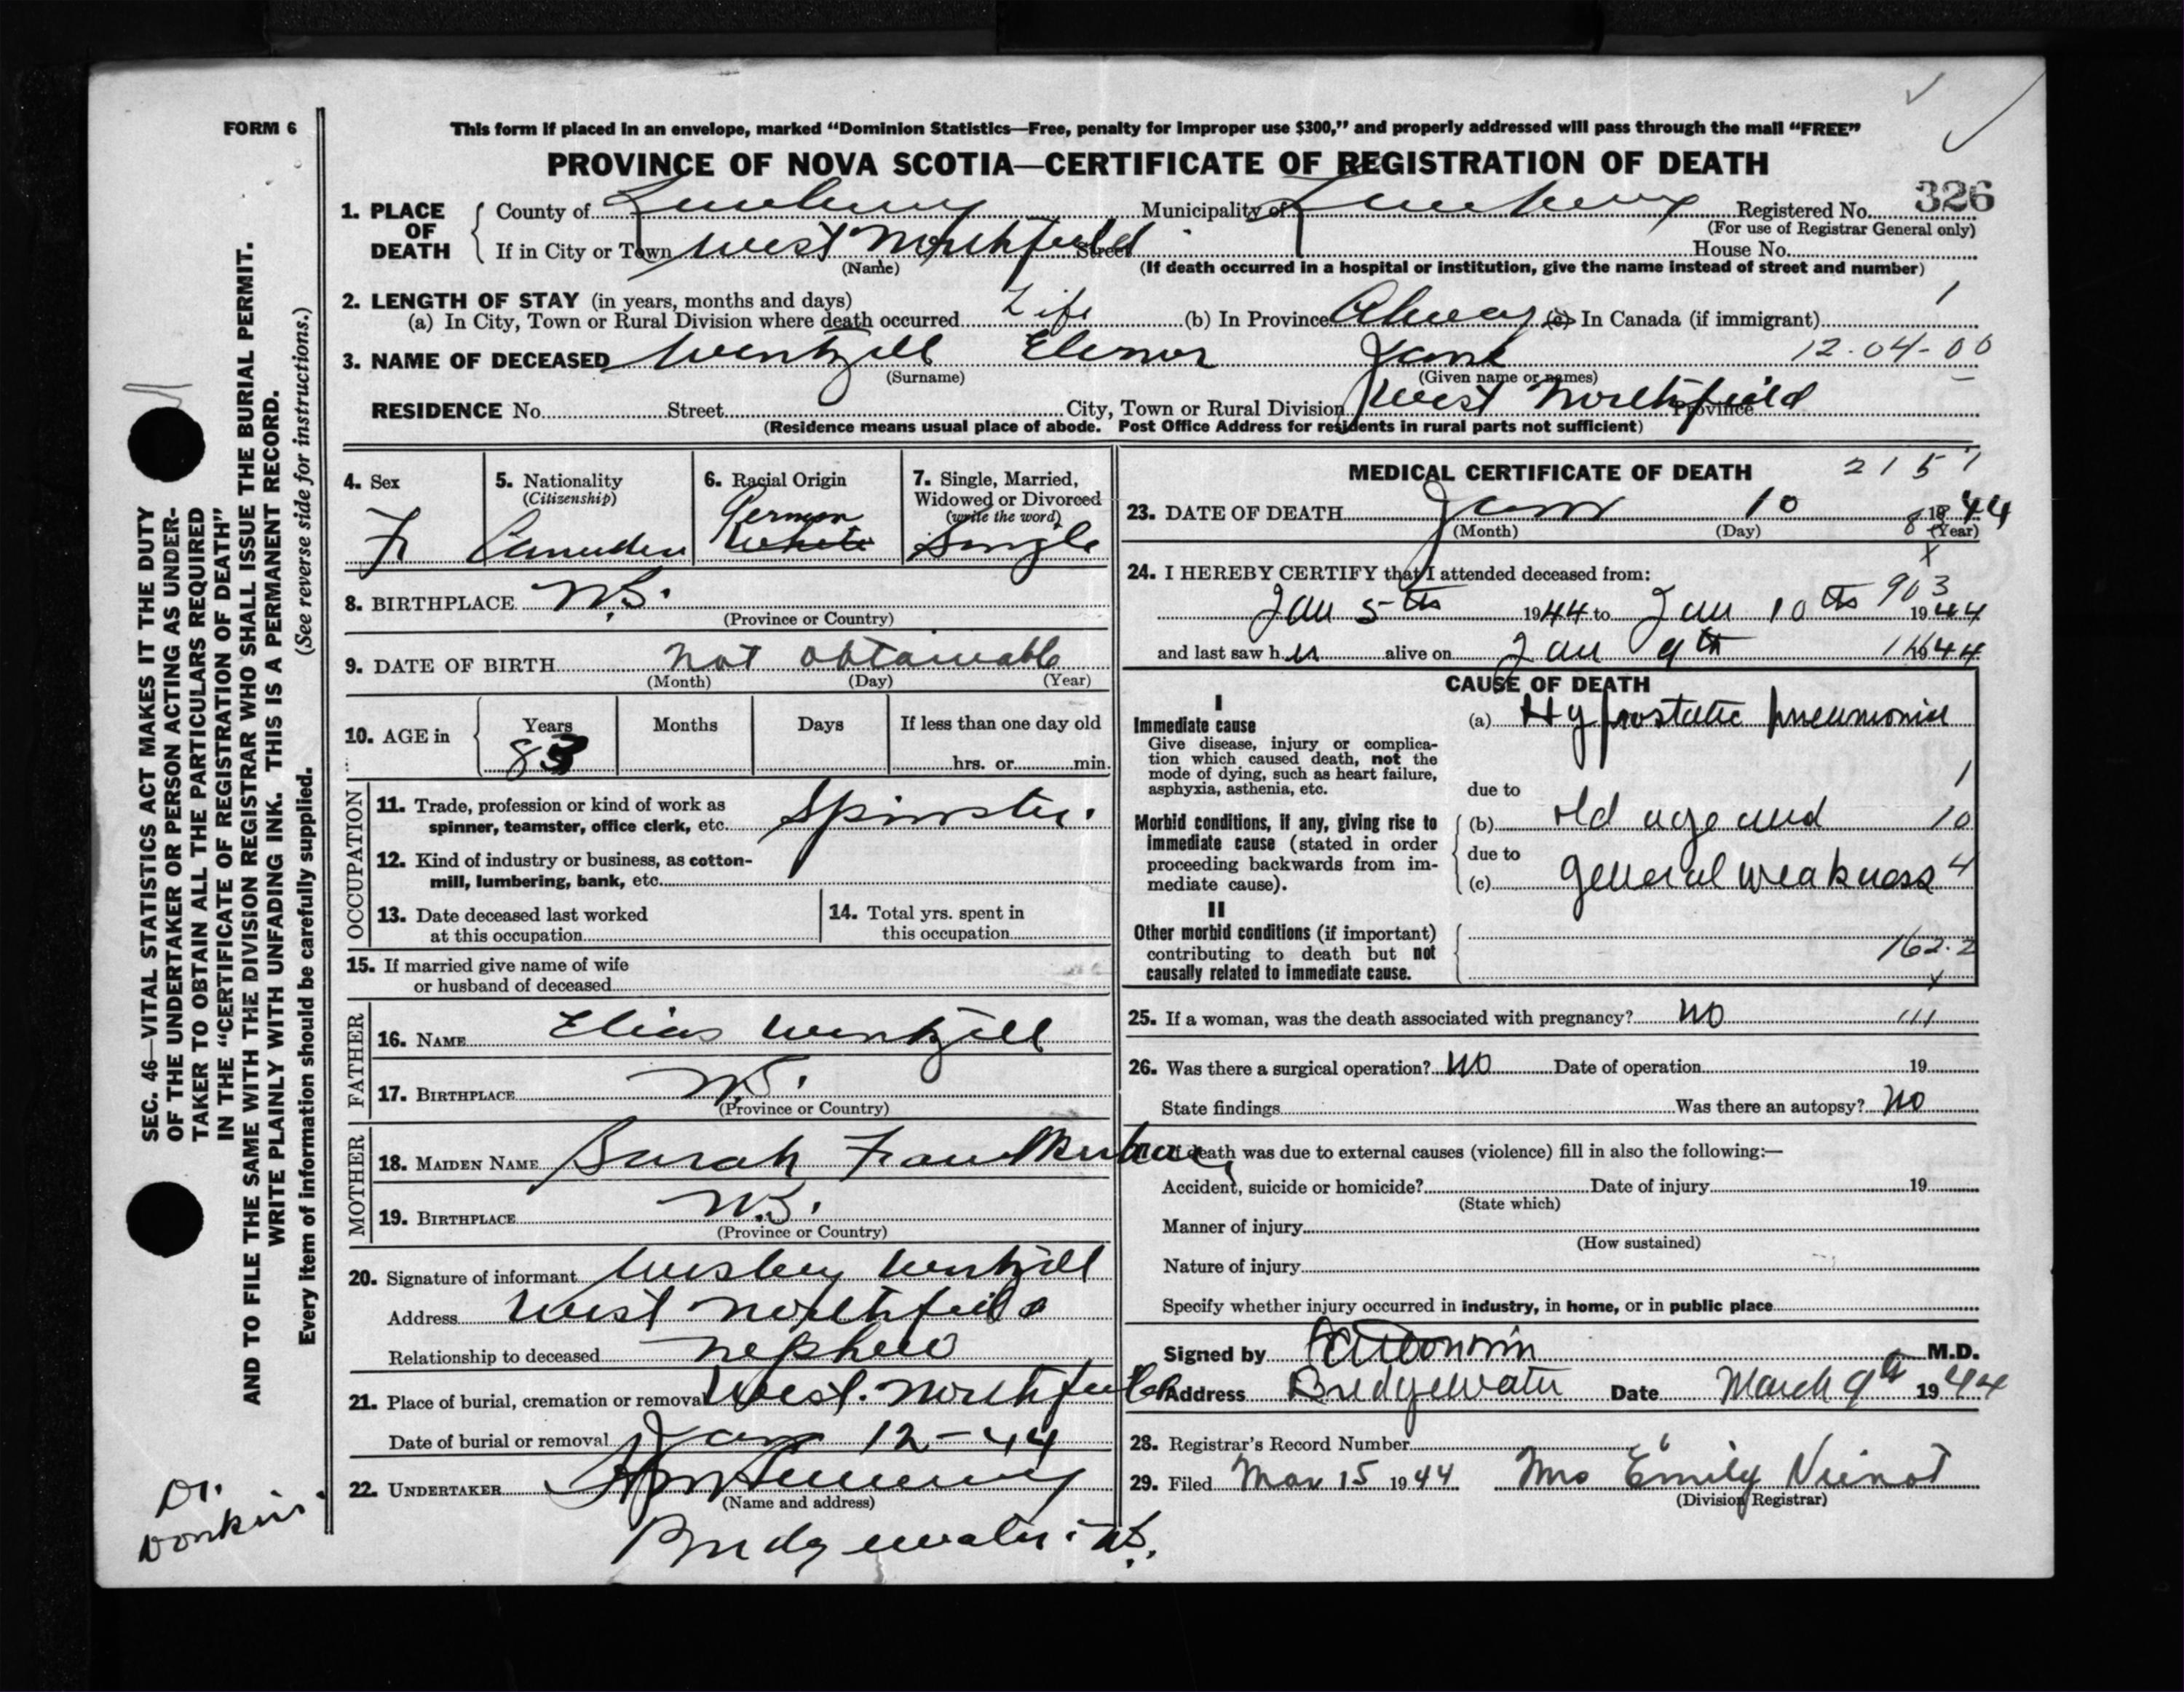 FORM 6
This form if placed in an envelope, marked “Dominion Statistics—Free, penalty for improper use $300,” and properly addressed will pass through the mail “FREE”
PROVINCE OF NOVA SCOTIA—CERTIFICATE OF REGISTRATION OF DEATH
1. PLACE OF DEATH
County of Lunenburg Municipality of Lunenburg Registered No. 326
(For use of Registrar General only)
If in City or Town West Northfield Street House No.
(Name) (If death occurred in a hospital or institution, give the name instead of street and number)
2. LENGTH OF STAY (in years, months and days)
(a) In City, Town or Rural Division where death occurred Life (b) In Province Always (c) In Canada (if immigrant) 1
3. NAME OF DECEASED Wentzell Elenor Jane 12-04-00
(Surname) (Given name or names)
RESIDENCE No. Street City, Town or Rural Division West Northfield Province
(Residence means usual place of abode. Post Office Address for residents in rural parts not sufficient)
4. Sex
F
5. Nationality
(Citizenship)
Canadian
6. Racial Origin
German
White
7. Single, Married,
Widowed or Divorced
(write the word)
Single
8. BIRTHPLACE N.S.
(Province or Country)
9. DATE OF BIRTH not obtainable
(Month) (Day) (Year)
10. AGE in
Years Months Days If less than one day old
83 hrs. or min.
OCCUPATION
11. Trade, profession or kind of work as
spinner, teamster, office clerk, etc. Spinster.
12. Kind of industry or business, as cotton-
mill, lumbering, bank, etc.
13. Date deceased last worked
at this occupation
14. Total yrs. spent in
this occupation
15. If married give name of wife
or husband of deceased
FATHER
16. NAME Elias Wentzell
17. BIRTHPLACE N.S.
(Province or Country)
MOTHER
18. MAIDEN NAME Sarah
19. BIRTHPLACE N.S.
(Province or Country)
20. Signature of informant Wesley Wentzell
Address West Northfield
Relationship to deceased nephew
21. Place of burial, cremation or removal West Northfield
Date of burial or removal Jan 12-44
22. UNDERTAKER
(Name and address)
Bridgewater N.S.
MEDICAL CERTIFICATE OF DEATH 2151
23. DATE OF DEATH Jan 10 1944
(Month) (Day) (Year)
24. I HEREBY CERTIFY that I attended deceased from:
903
Jan 5th 1944 to Jan 10th 1944
and last saw her alive on Jan 9th 1944
CAUSE OF DEATH
I
Immediate cause
Give disease, injury or complica-
tion which caused death, not the
mode of dying, such as heart failure,
asphyxia, asthenia, etc.
(a) Hypostatic pneumonia
due to 1
Morbid conditions, if any, giving rise to
immediate cause (stated in order
proceeding backwards from im-
mediate cause).
(b) old age and 10
due to
(c) general weakness 4
II
Other morbid conditions (if important)
contributing to death but not
causally related to immediate cause.
162.2
25. If a woman, was the death associated with pregnancy? No
26. Was there a surgical operation? No Date of operation 19
State findings Was there an autopsy? No
death was due to external causes (violence) fill in also the following:—
Accident, suicide or homicide? Date of injury 19
(State which)
Manner of injury
(How sustained)
Nature of injury
Specify whether injury occurred in industry, in home, or in public place
Signed by M.D.
Address Bridgewater Date March 9th 1944
28. Registrar's Record Number 6
29. Filed Mar 15 1944 Mrs Emily Vienot
(Division Registrar)
SEC. 46—VITAL STATISTICS ACT MAKES IT THE DUTY
OF THE UNDERTAKER OR PERSON ACTING AS UNDER-
TAKER TO OBTAIN ALL THE PARTICULARS REQUIRED
IN THE “CERTIFICATE OF REGISTRATION OF DEATH”
AND TO FILE THE SAME WITH THE DIVISION REGISTRAR WHO SHALL ISSUE THE BURIAL PERMIT.
WRITE PLAINLY WITH UNFADING INK. THIS IS A PERMANENT RECORD.
Every item of information should be carefully supplied. (See reverse side for instructions.)
Dr.
Donkin.